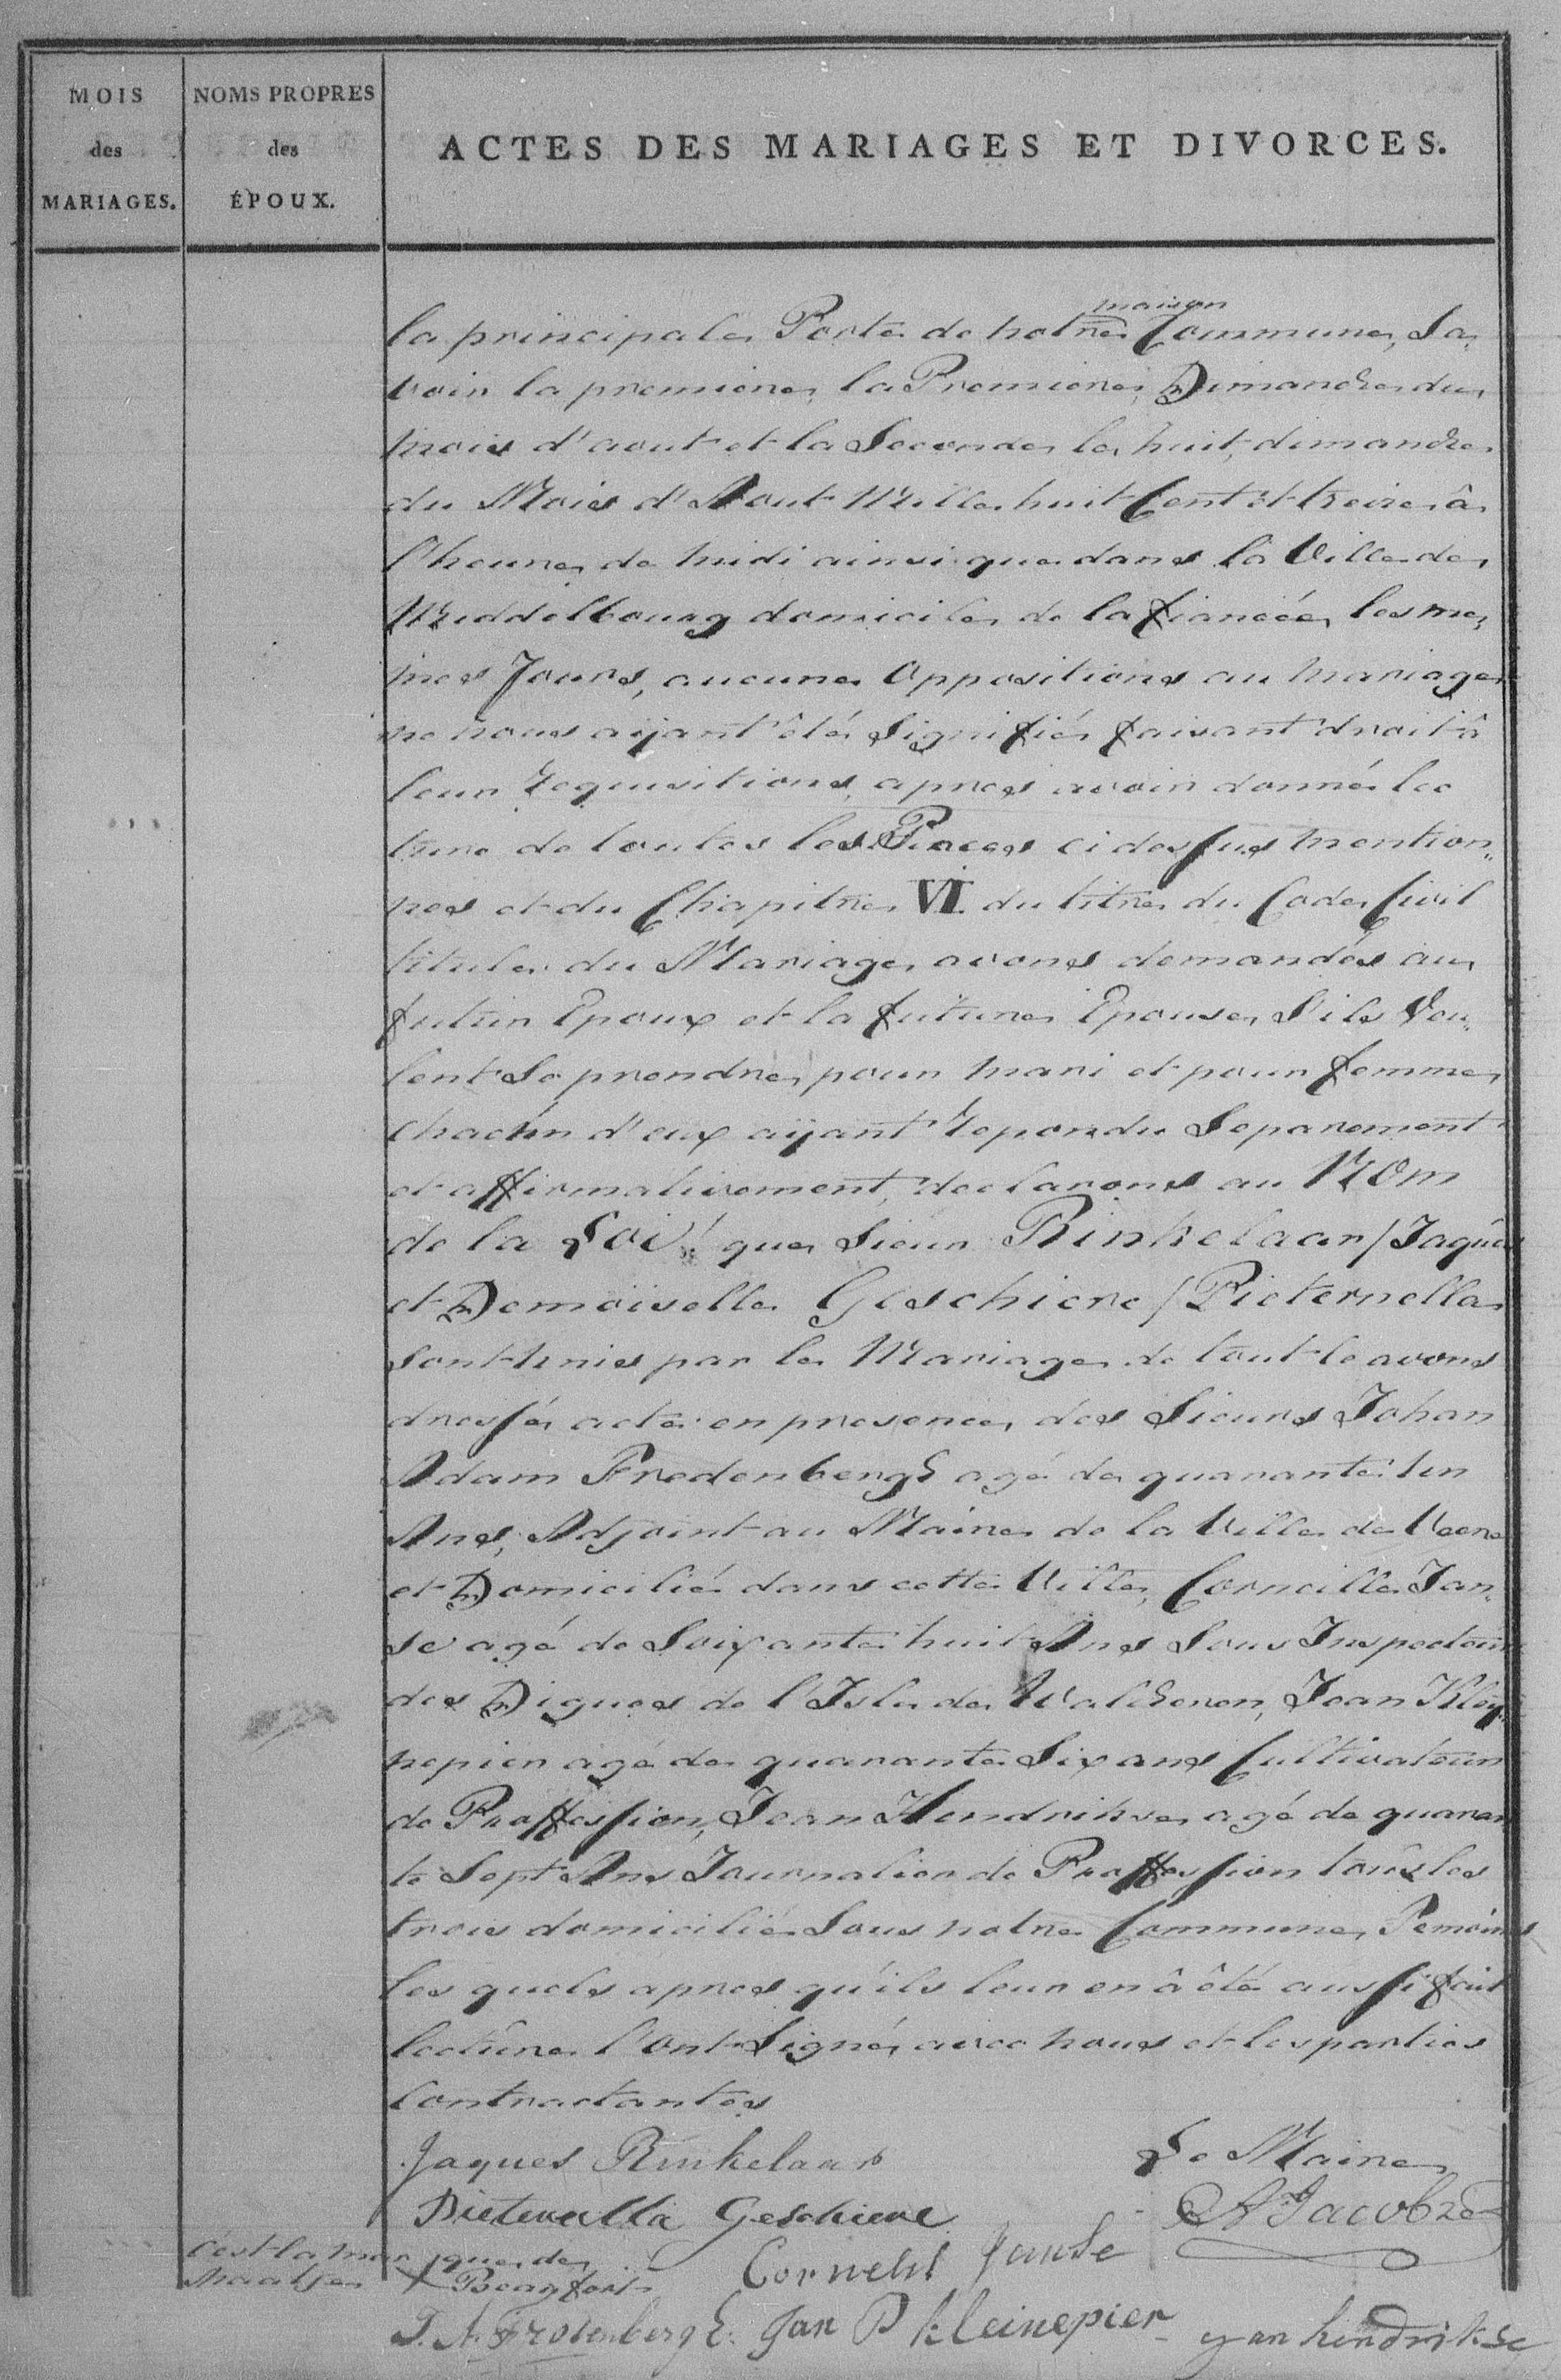 MOIS
des
MARIAGES.
NOMS PROPRES
des
ÉPOUX.
ACTES DES MARIAGES ET DIVORCES.
maison
la principale Porte de notre Commune, Sa,
voir la premiere, la Premiere, Dimanche du
mois d'aout et la Seconde le, huit, dimanche
du Mois d'Aout Mille huit Cent et treize â
l'heure de midi ainsi que dans la Ville de
Middelbourg domicile de la fiancée, les me,
mes Jours, aucunes Oppositions au mariage
ne nous aÿant êté Signifié faisant droit â
leur requisitions, apres avoir donné lec
ture de toutes les Pieces ci dessus mention,,
nes et du Chapitre VI. du titre du Code Civil
titule du Mariage, avons demandés au
futur Epoux et la future Epouse, S'ils Veu,
lent Se prendre, pour mari et pour femme,
chacun d'eux aÿant repondu Separement
et affirmativement, declarons au Nom
de la Loi! que Sieur Rinkelaar / Jaques
et Demoiselle Geschiere / Pieternella
Sont Unis par le Mariage de tout le avons
dressé acte en presence, des Sieurs Johan
Adam Fredenbergh agé de quarante Un
Ans, Adjoint au Maire de la Ville de Veere
et Domicilié dans cette Ville, Corneille Jan,
se agé de Soixante huit Ans Sous Inspecteur
des Digues de l'Isle de Walcheren, Jean Kleÿ,
nepier agé de quarante Six ans Cultivateur
de Proffession, Jean Hendrikse, agé de quaran
te Sept Ans Journalier de Proffession toûs les
trois domicilié Sous notre Commune, Temoins
les quels apres qu'ils leur en â êté aussi fait
lectûre l'Ont Signé, avec nous et les parties
Contractantes
Jaques Rinkelaar
Le Maire
Pieternella Geschiere
A Jacobze
C'est la mar que de
Cornelis Janse
Maatje X Beaufort
J. A. Fredenbergh. Jan P kleinepier
yan hendrikse